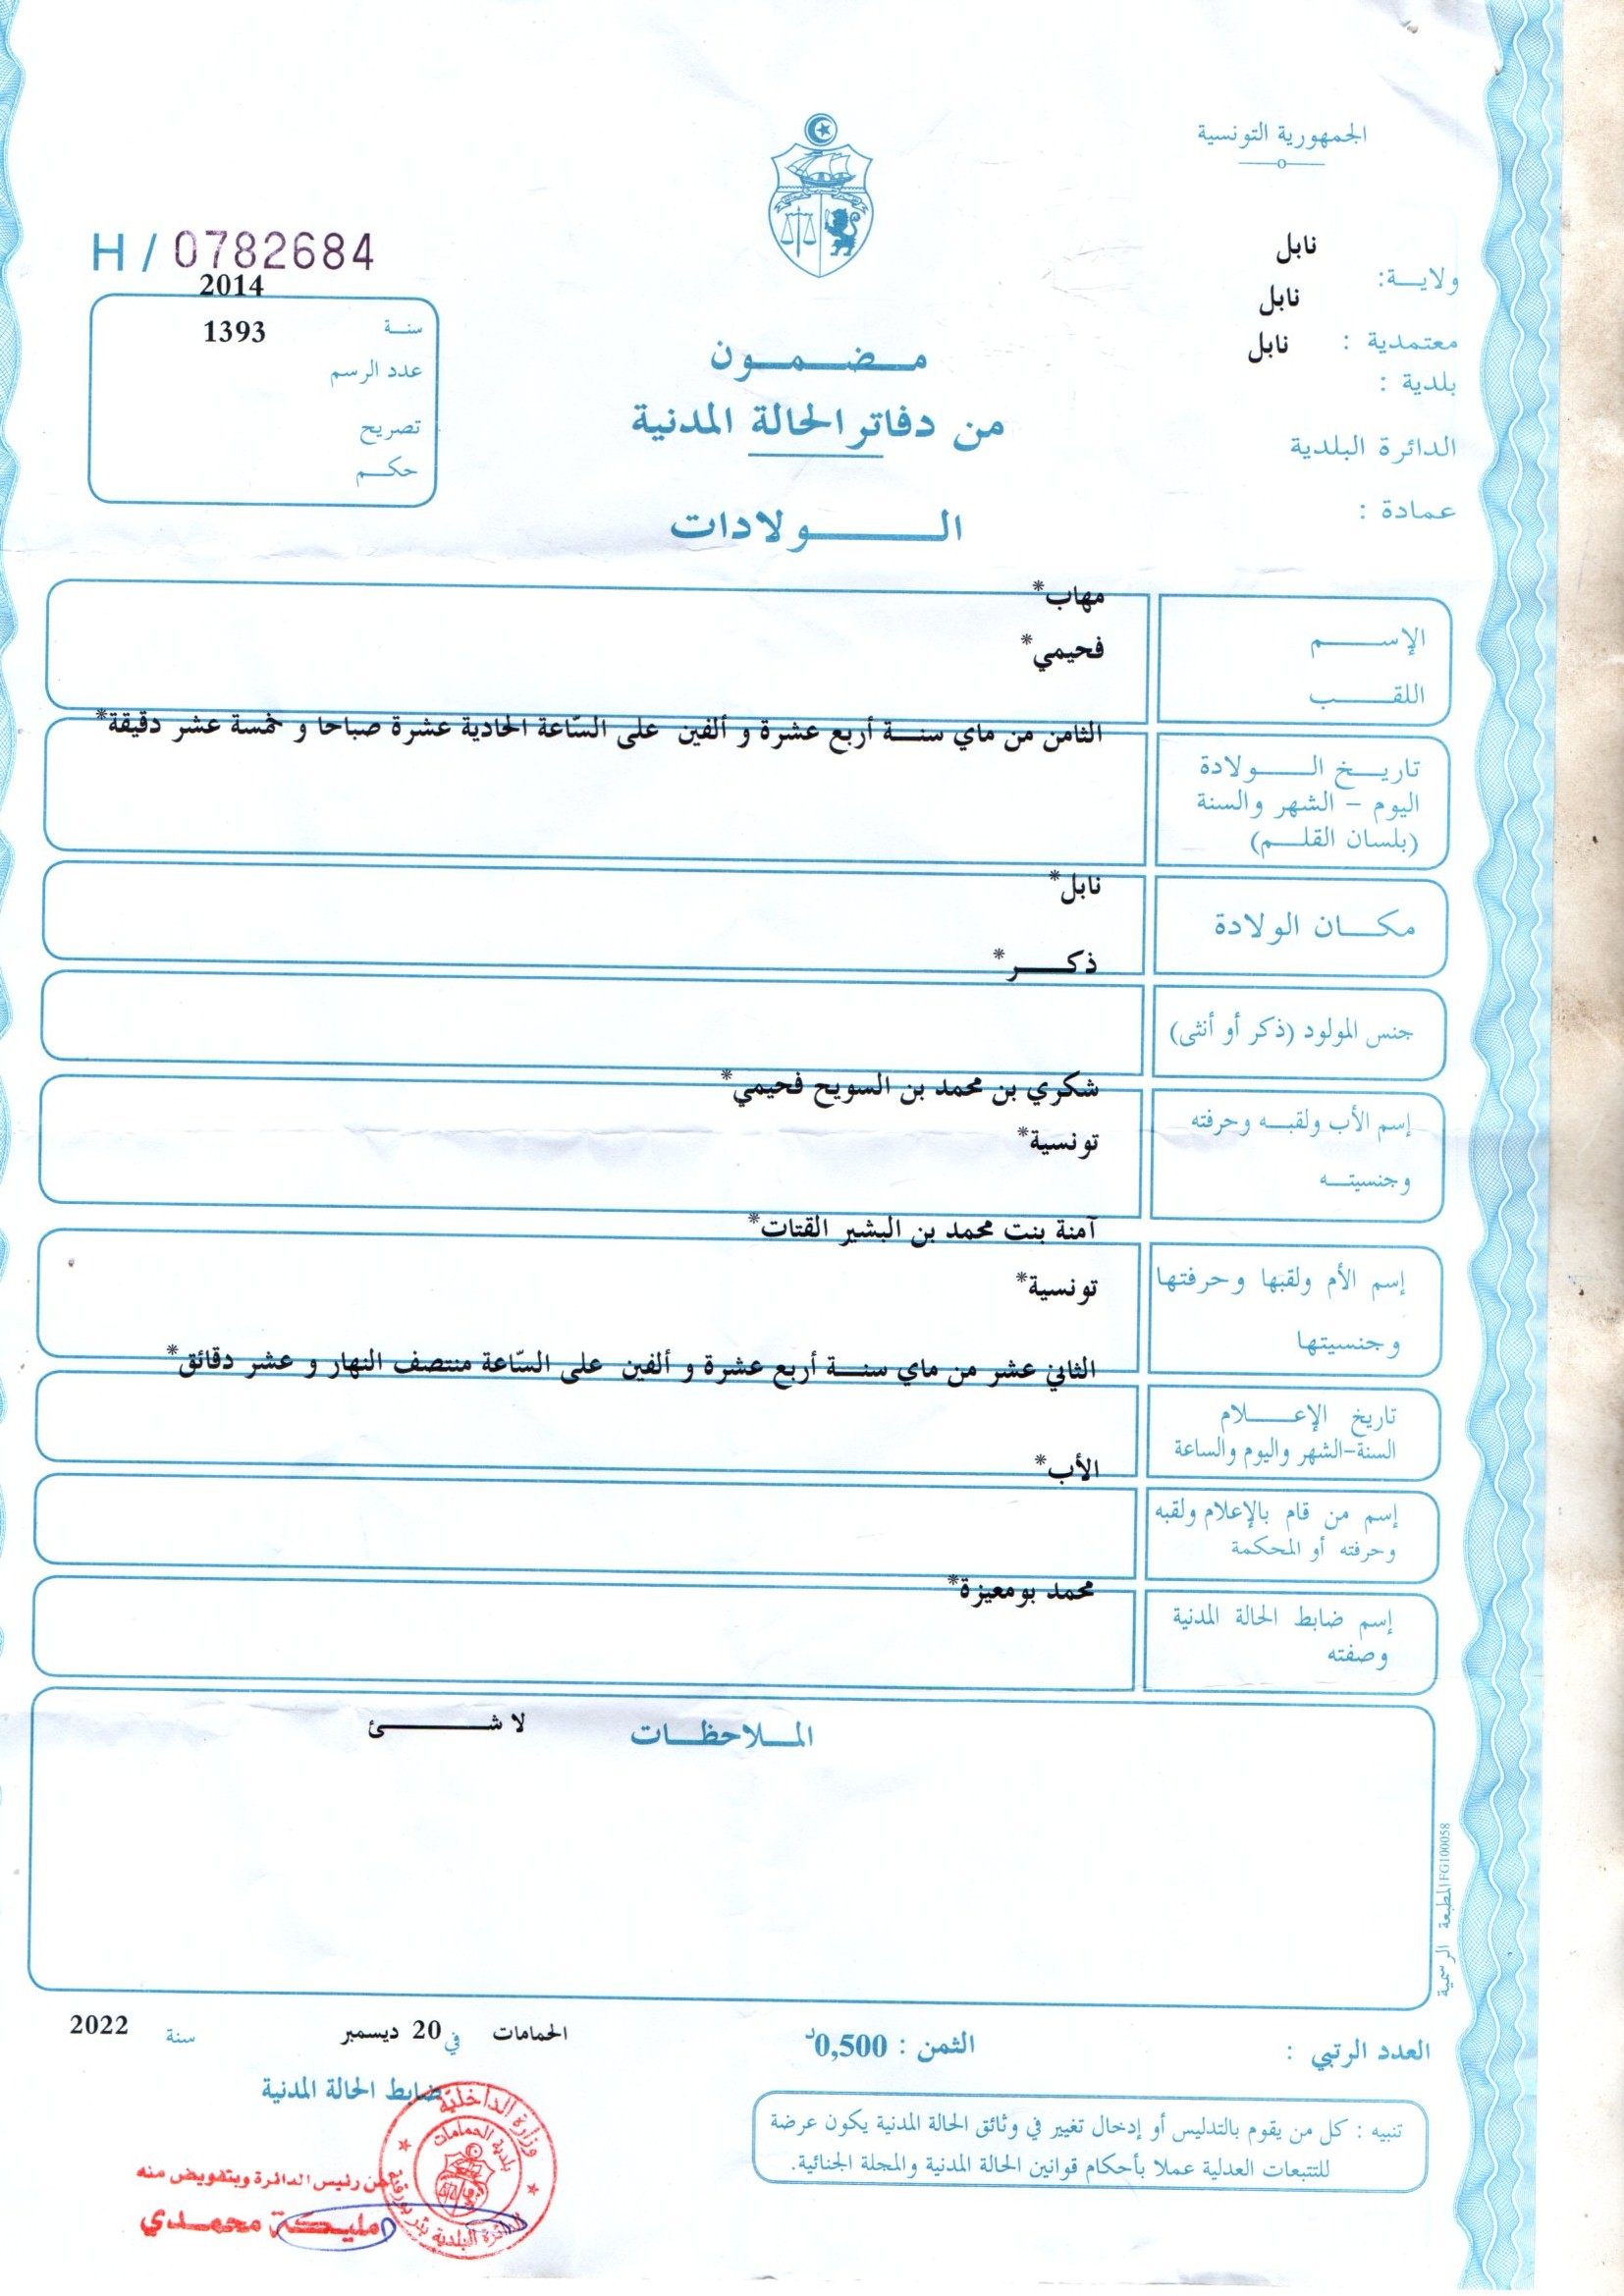 الجمهورية التونسية
H / 0782684
نابل
ولايــة:
نابل
معتمدية :
نابل
بلدية :
الدائرة البلدية
عمادة :
2014
سنــة
1393
عدد الرسم
تصريح
حكــم
مــضــمــون
من دفاتر الحالة المدنية
الــــولادات
مهاب*
الإســــم
فحيمي*
اللقــــب
الثامن من ماي سنــة أربع عشرة و ألفين على السّاعة الحادية عشرة صباحا و خمسة عشر دقيقة*
تاريــخ الــــولادة
اليوم – الشهر والسنة
(بلسان القلــم)
نابل*
مكــان الولادة
ذكــــر*
جنس المولود (ذكر أو أنثى)
شكري بن محمد بن السويح فحيمي*
إسم الأب ولقبــه وحرفته
تونسية*
وجنسيتــه
آمنة بنت محمد بن البشير القتات*
إسم الأم ولقبها وحرفتها
تونسية*
وجنسيتها
الثاني عشر من ماي سنــة أربع عشرة و ألفين على السّاعة منتصف النهار و عشر دقائق*
تاريخ الإعــــلام
السنة-الشهر واليوم والساعة
الأب*
إسم من قام بالإعلام ولقبه
وحرفته أو المحكمة
محمد بومعيزة*
إسم ضابط الحالة المدنية
وصفته
المــلاحظــات
لا شــــــئ
المطبعة الرسمية FG100058
العدد الرتبي :
الثمن : 0,500د
الحمامات في 20 ديسمبر سنة 2022
ضابط الحالة المدنية
تنبيه : كل من يقوم بالتدليس أو إدخال تغيير في وثائق الحالة المدنية يكون عرضة
للتتبعات العدلية عملا بأحكام قوانين الحالة المدنية والمجلة الجنائية.
وزارة الداخلية
بلدية الحمامات
الدائرة البلدية بئر بورقبة
عن رئيس الدائرة وبتفويض منه
مليكة محمدي